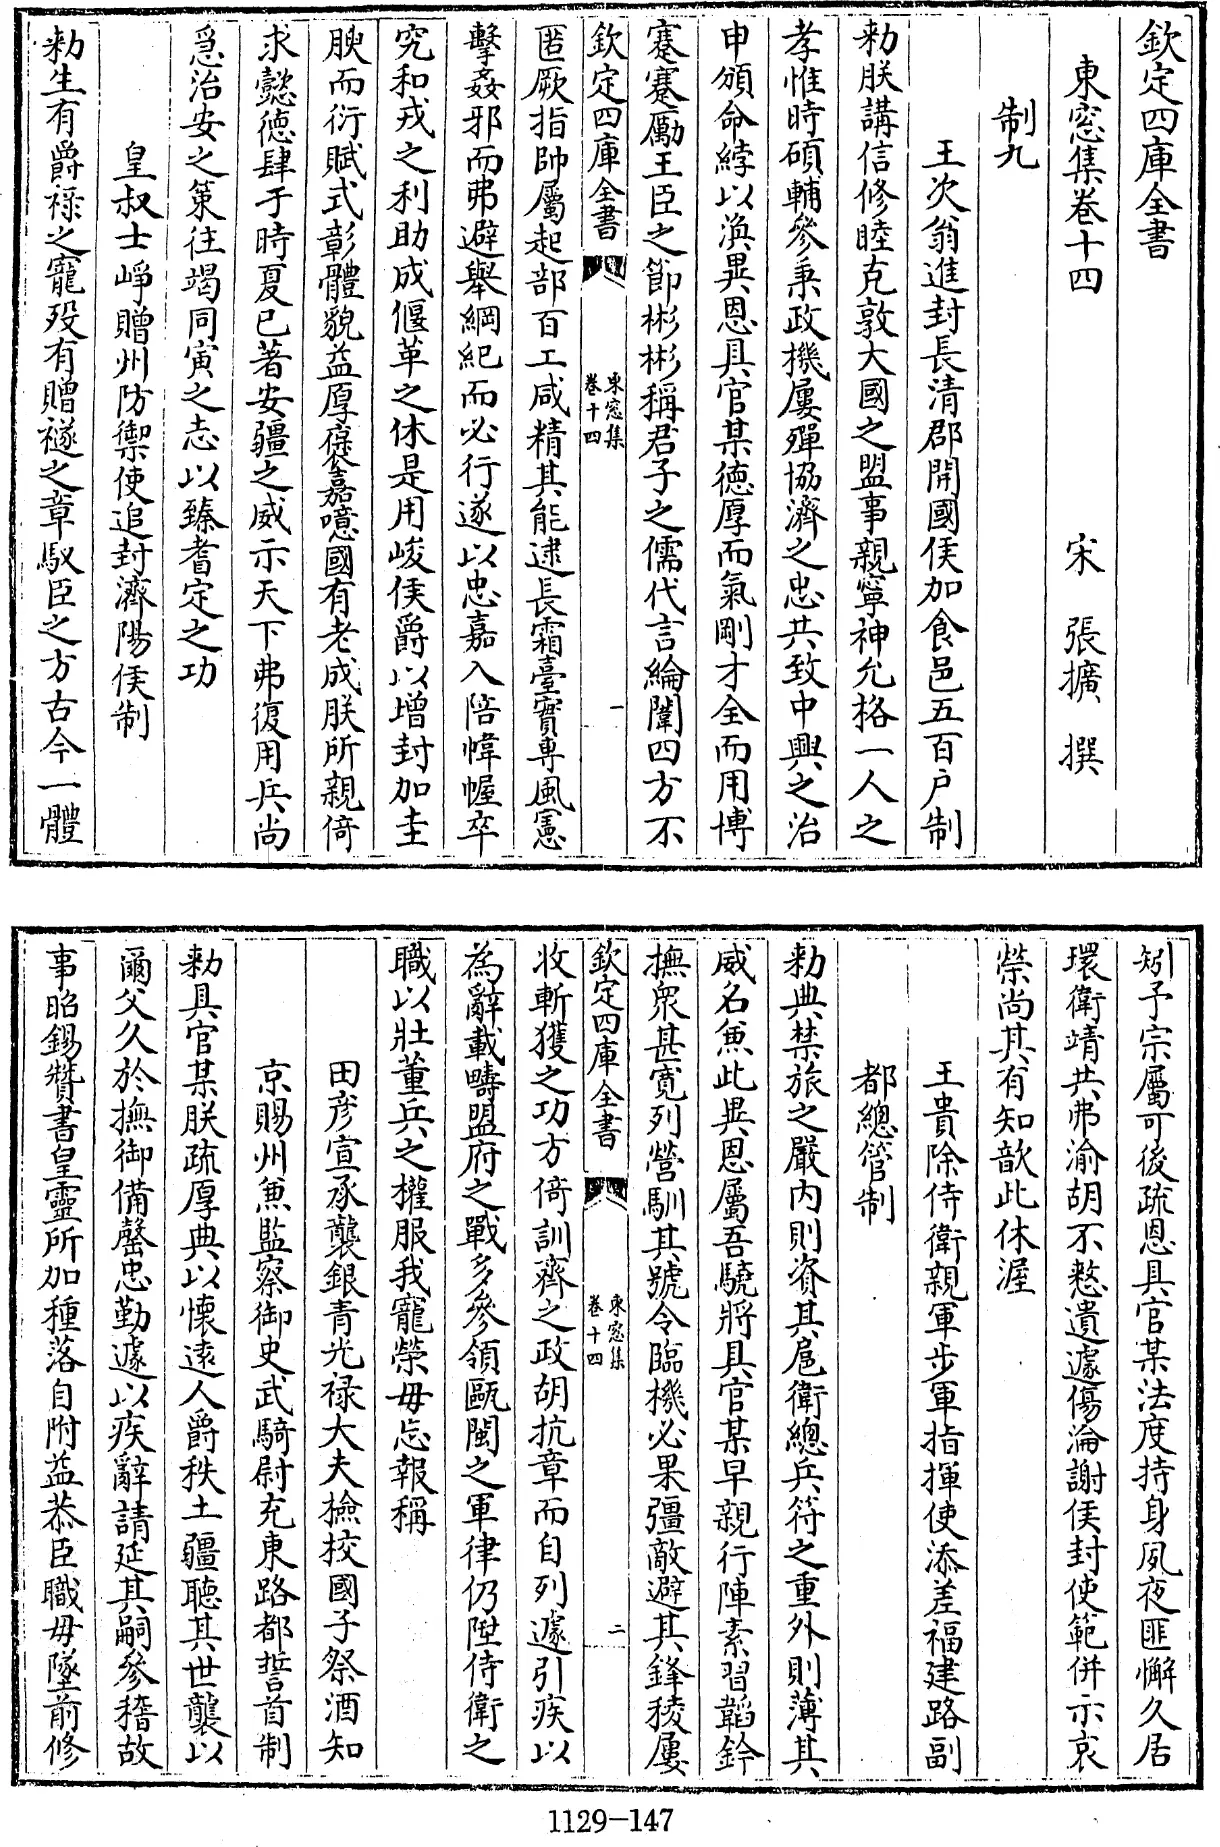 欽定四庫全書
東窓集卷十四
宋 張擴 撰
制九
王次翁進封長清郡開國侯加食邑五百户制
勑朕講信修睦克敦大國之盟事親寧神允格一人之
孝惟時碩輔參秉政機屢殫協濟之忠共致中興之治
申頒命綍以渙異恩具官某徳厚而氣剛才全而用博
蹇蹇勵王臣之節彬彬稱君子之儒代言綸闈四方不
欽定四庫全書
東窓集
卷十四
一
匿厥指帥屬起部百工咸精其能逮長霜臺實專風憲
擊姦邪而弗避舉綱紀而必行遂以忠嘉入陪幃幄卒
究和戎之利助成偃革之休是用峻侯爵以增封加圭
腴而衍賦式彰體貌益厚褒嘉噫國有老成朕所親倚
求懿徳肆于時夏已著安疆之威示天下弗復用兵尚
思治安之策往竭同寅之志以臻耆定之功
皇叔士崢贈州防禦使追封濟陽侯制
勑生有爵禄之寵殁有贈襚之章馭臣之方古今一體
矧予宗屬可後疏恩具官某法度持身夙夜匪懈久居
環衛靖共弗渝胡不憖遺遽傷淪謝侯封使範併示哀
榮尚其有知歆此休渥
王貴除侍衛親軍步軍指揮使添差福建路副
都總管制
勑典禁旅之嚴内則資其扈衛總兵符之重外則薄其
威名兼此異恩屬吾驍將具官某早親行陣素習韜鈐
撫衆甚寛列營馴其號令臨機必果彊敵避其鋒稜屢
欽定四庫全書
東窓集
卷十四
二
收斬獲之功方倚訓齊之政胡抗章而自列遽引疾以
為辭載疇盟府之戰多參領甌閩之軍律仍陞侍衛之
職以壯董兵之權服我寵榮毋忘報稱
田彦宣承襲銀青光禄大夫撿校國子祭酒知
京賜州兼監察御史武騎尉充東路都誓首制
勑具官某朕疏厚典以懷遠人爵秩土疆聽其世襲以
爾父久於撫御備罄忠勤遽以疾辭請延其嗣參稽故
事昭錫贊書皇靈所加種落自附益恭臣職毋墜前修
1129-147